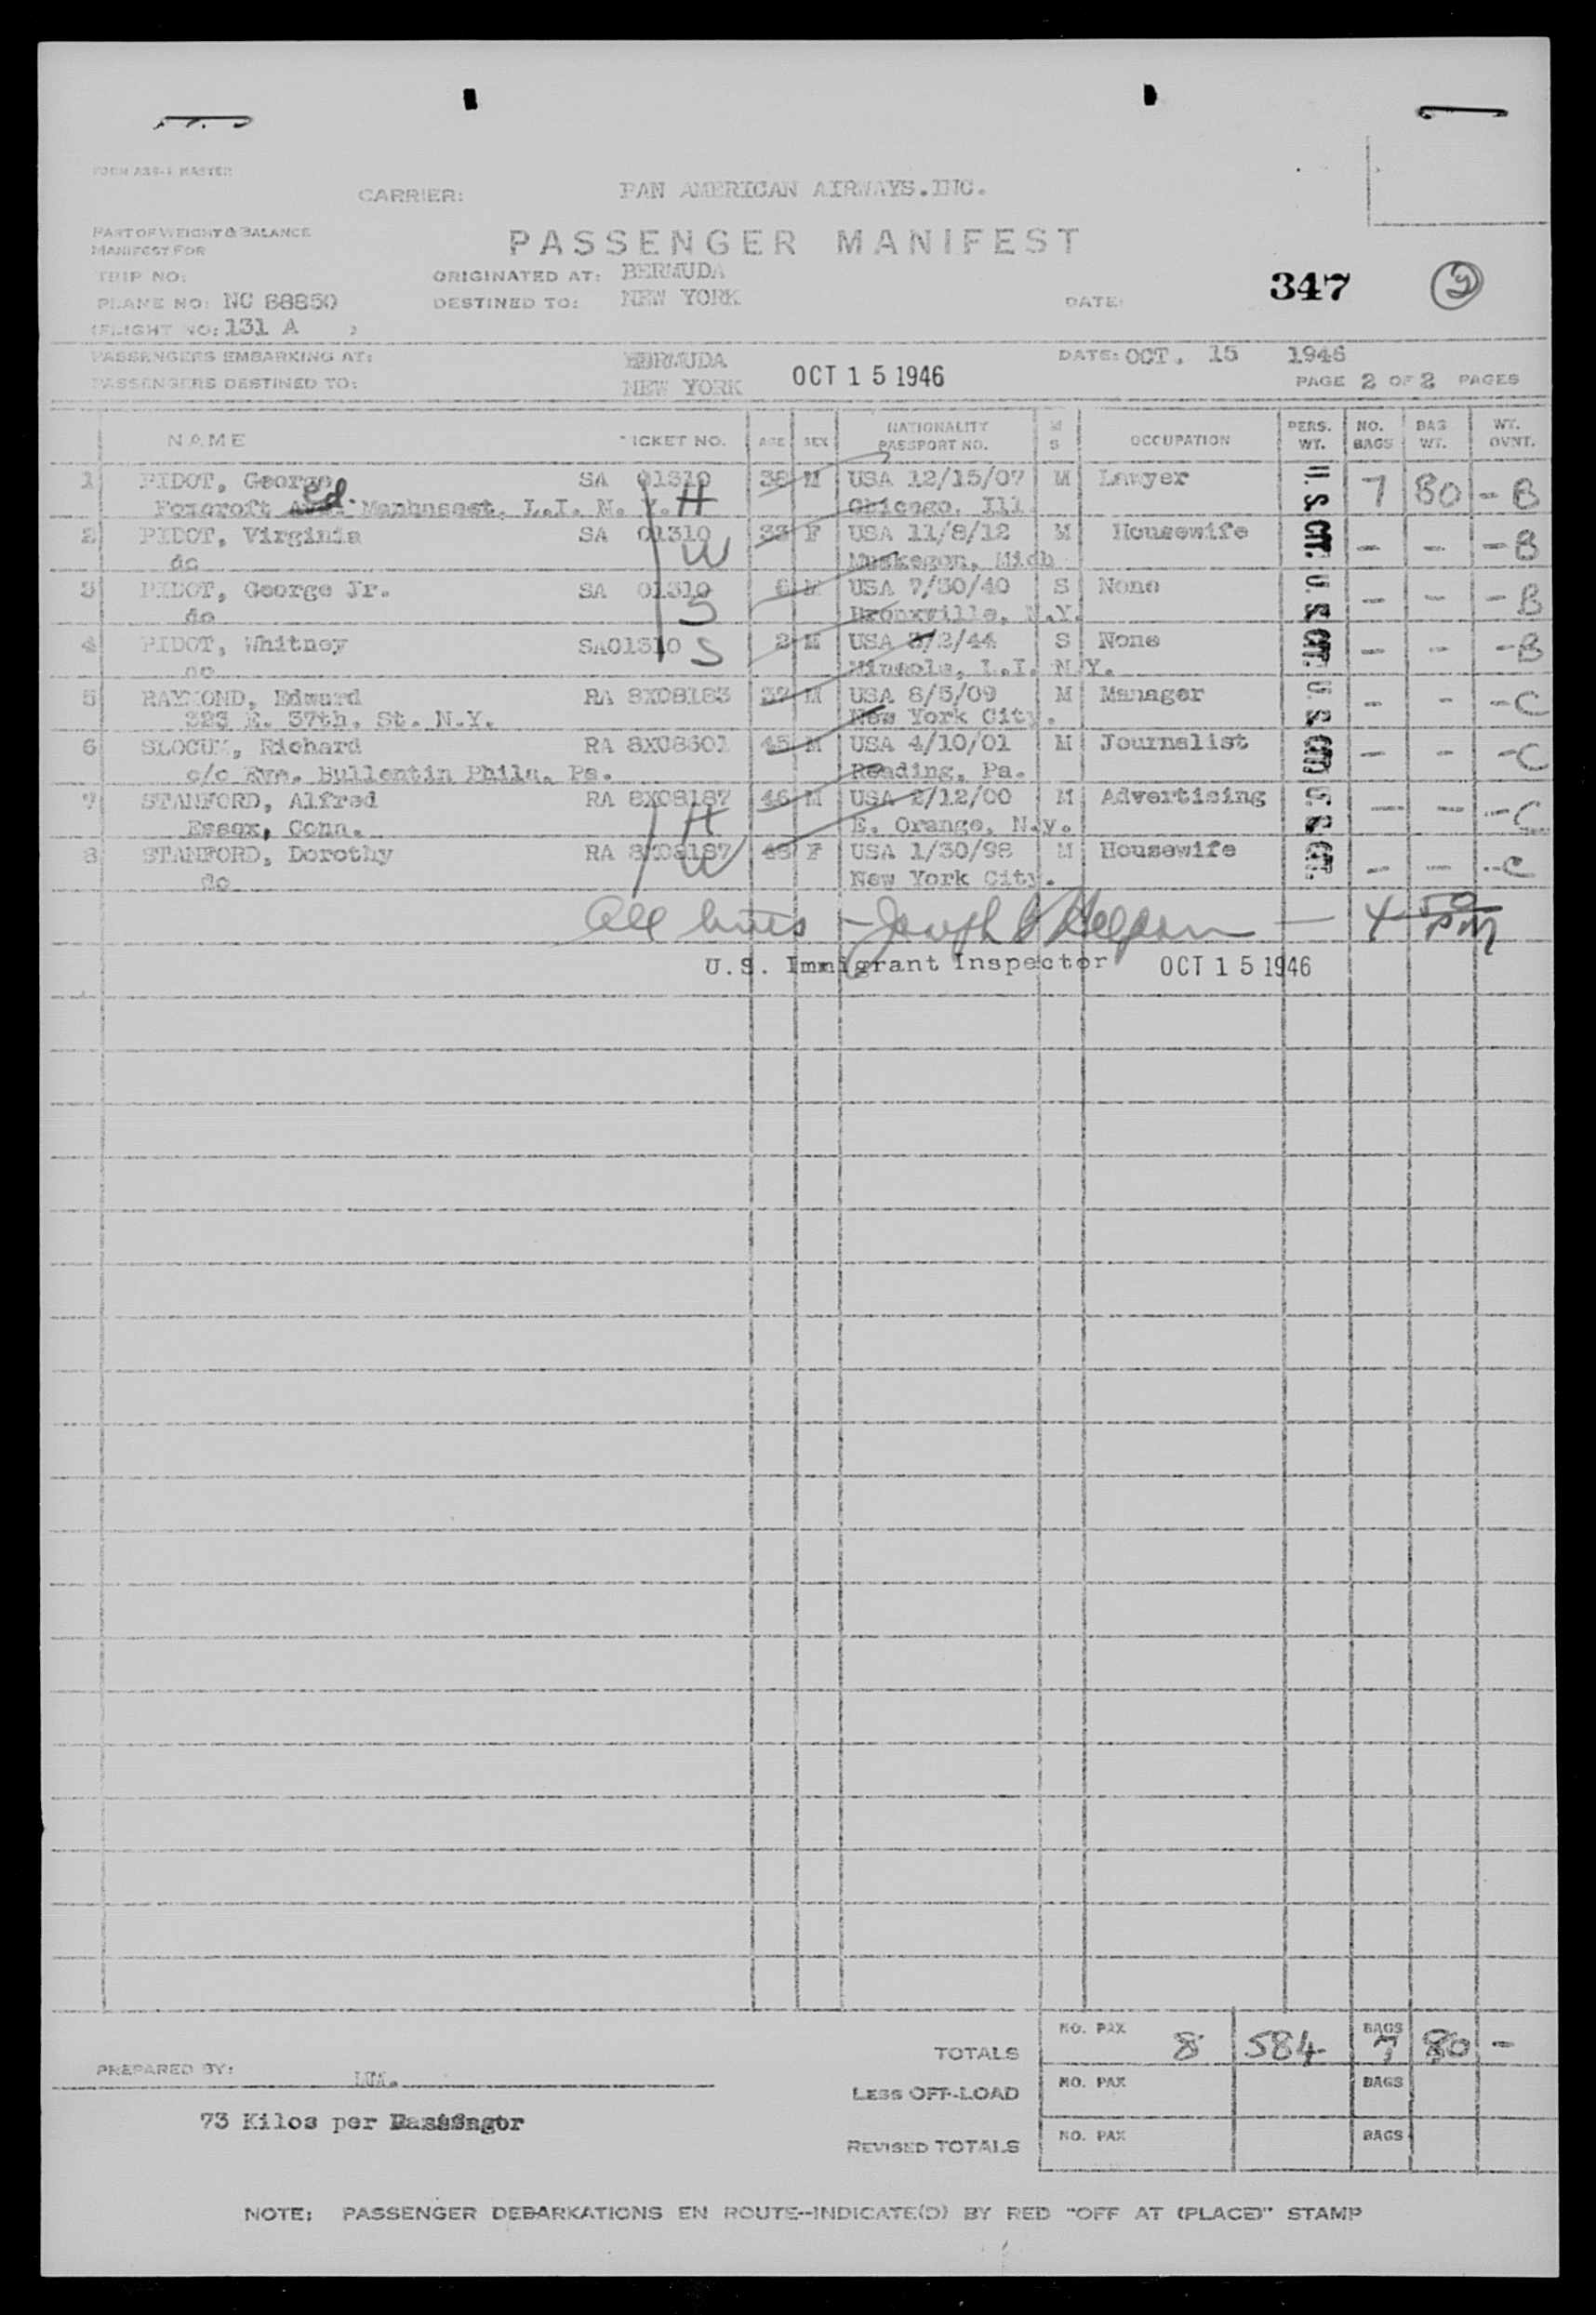 FORM ASS-1 MASTER
CARRIER: PAN AMERICAN AIRWAYS.INC.
PART OF WEIGHT & BALANCE
MANIFEST FOR
PASSENGER MANIFEST
TRIP NO:
ORIGINATED AT: BERMUDA
PLANE NO: NC 88850
DESTINED TO: NEW YORK
DATE:
347
2
(FLIGHT NO: 131 A )
PASSENGERS EMBARKING AT: BERMUDA DATE: OCT. 15 1946
PASSENGERS DESTINED TO: NEW YORK OCT 15 1946 PAGE 2 OF 2 PAGES
NAME TICKET NO. AGE SEX NATIONALITY PASSPORT NO. M S OCCUPATION PERS. WT. NO. BAGS BAG WT. WT. OVNT.
1 PIDOT, George SA 01310 38 M USA 12/15/07 M Lawyer U.S. CIT. 7 80 - B
Foxcroft Rd. Manhasset, L.I. N. Y. H Chicago, Ill
2 PIDOT, Virginia SA 01310 33 F USA 11/8/12 M Housewife - - - B
do W Muskegon, Mich
3 PIDOT, George Jr. SA 01310 6 M USA 7/30/40 S None U.S. CIT. - - - B
do S Bronxville, N.Y.
4 PIDOT, Whitney SA01310 2 M USA 3/2/44 S None - - - B
do S Mineola, L.I. N.Y.
5 RAYMOND, Edward RA 8X08183 37 M USA 8/5/09 M Manager U.S. CIT. - - - C
323 E. 37th. St. N.Y. New York City.
6 SLOCUM, Richard RA 8X08601 45 M USA 4/10/01 M Journalist - - - C
c/o Eve. Bullentin Phila. Pa. Reading, Pa.
7 STANFORD, Alfred RA 8X08187 46 M USA 2/12/00 M Advertising U.S. CIT. - - - C
Essex, Conn. H E. Orange, N.y.
8 STANFORD, Dorothy RA 8X08187 48 F USA 1/30/98 M Housewife - - - C
do W New York City.
All - Joseph 4 50 PM
U.S. Immigrant Inspector OCT 15 1946
TOTALS NO. PAX 8 584 BAGS 7 80 -
PREPARED BY:
LESS OFF-LOAD NO. PAX BAGS
73 Kilos per Passenger
REVISED TOTALS NO. PAX BAGS
NOTE: PASSENGER DEBARKATIONS EN ROUTE--INDICATE(D) BY RED "OFF AT (PLACE)" STAMP